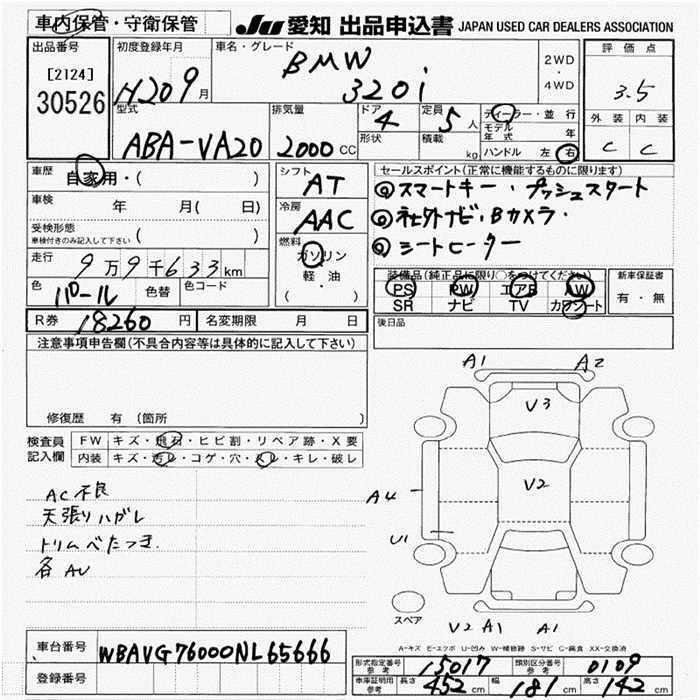 車内保管・守衛保管
JU 愛知 出品申込書 JAPAN USED CAR DEALERS ASSOCIATION
出品番号
[2124]
30526
初度登録年月
H20 9 月
車名・グレード
BMW
320i
2WD
・
4WD
評価点
3.5
外装 内装
C C
型式
ABA-VA20
排気量
2000 CC
ドア
4
形状
定員
5 人
積載
kg
ディーラー・並行
モデル年式 年
ハンドル 左・右
車歴
自家用・( )
車検
年 月( 日)
受検形態
車検付きのみ記入して下さい
( )
走行
9万9千633km
色
パール
色替
色コード
シフト
AT
冷房
AAC
燃料
ガソリン
軽・油
( )
セールスポイント(正常に機能するものに限ります)
◎スマートキー・プッシュスタート
◎社外ナビ・Bカメラ・
◎シートヒーター
装備品(純正品に限り○をつけてください)
PS PW エアB AW
SR ナビ TV カワシート
新車保証書
有・無
後日品
R券 18260 円 名変期限 月 日
注意事項申告欄(不具合内容等は具体的に記入して下さい)
修復歴 有 (箇所 )
検査員
記入欄
FW キズ・飛石・ヒビ割・リペア跡・X要
内装 キズ・汚レ・コゲ・穴・スレ・キレ・破レ
AC不良
天張りハガレ
トリムべたつき.
各AU
A1 A2
V3
V2
A4
U1
スペア
V2 A1 A1
A-キズ E-エクボ U-凹み W-補修跡 S-サビ C-腐食 XX-交換済
車台番号 WBAVG76000NL65666
登録番号
形式指定番号 参考 15017 類別区分番号 参考 0109
車庫証明用 参考 長さ 452 cm 幅 181 cm 高さ 142 cm